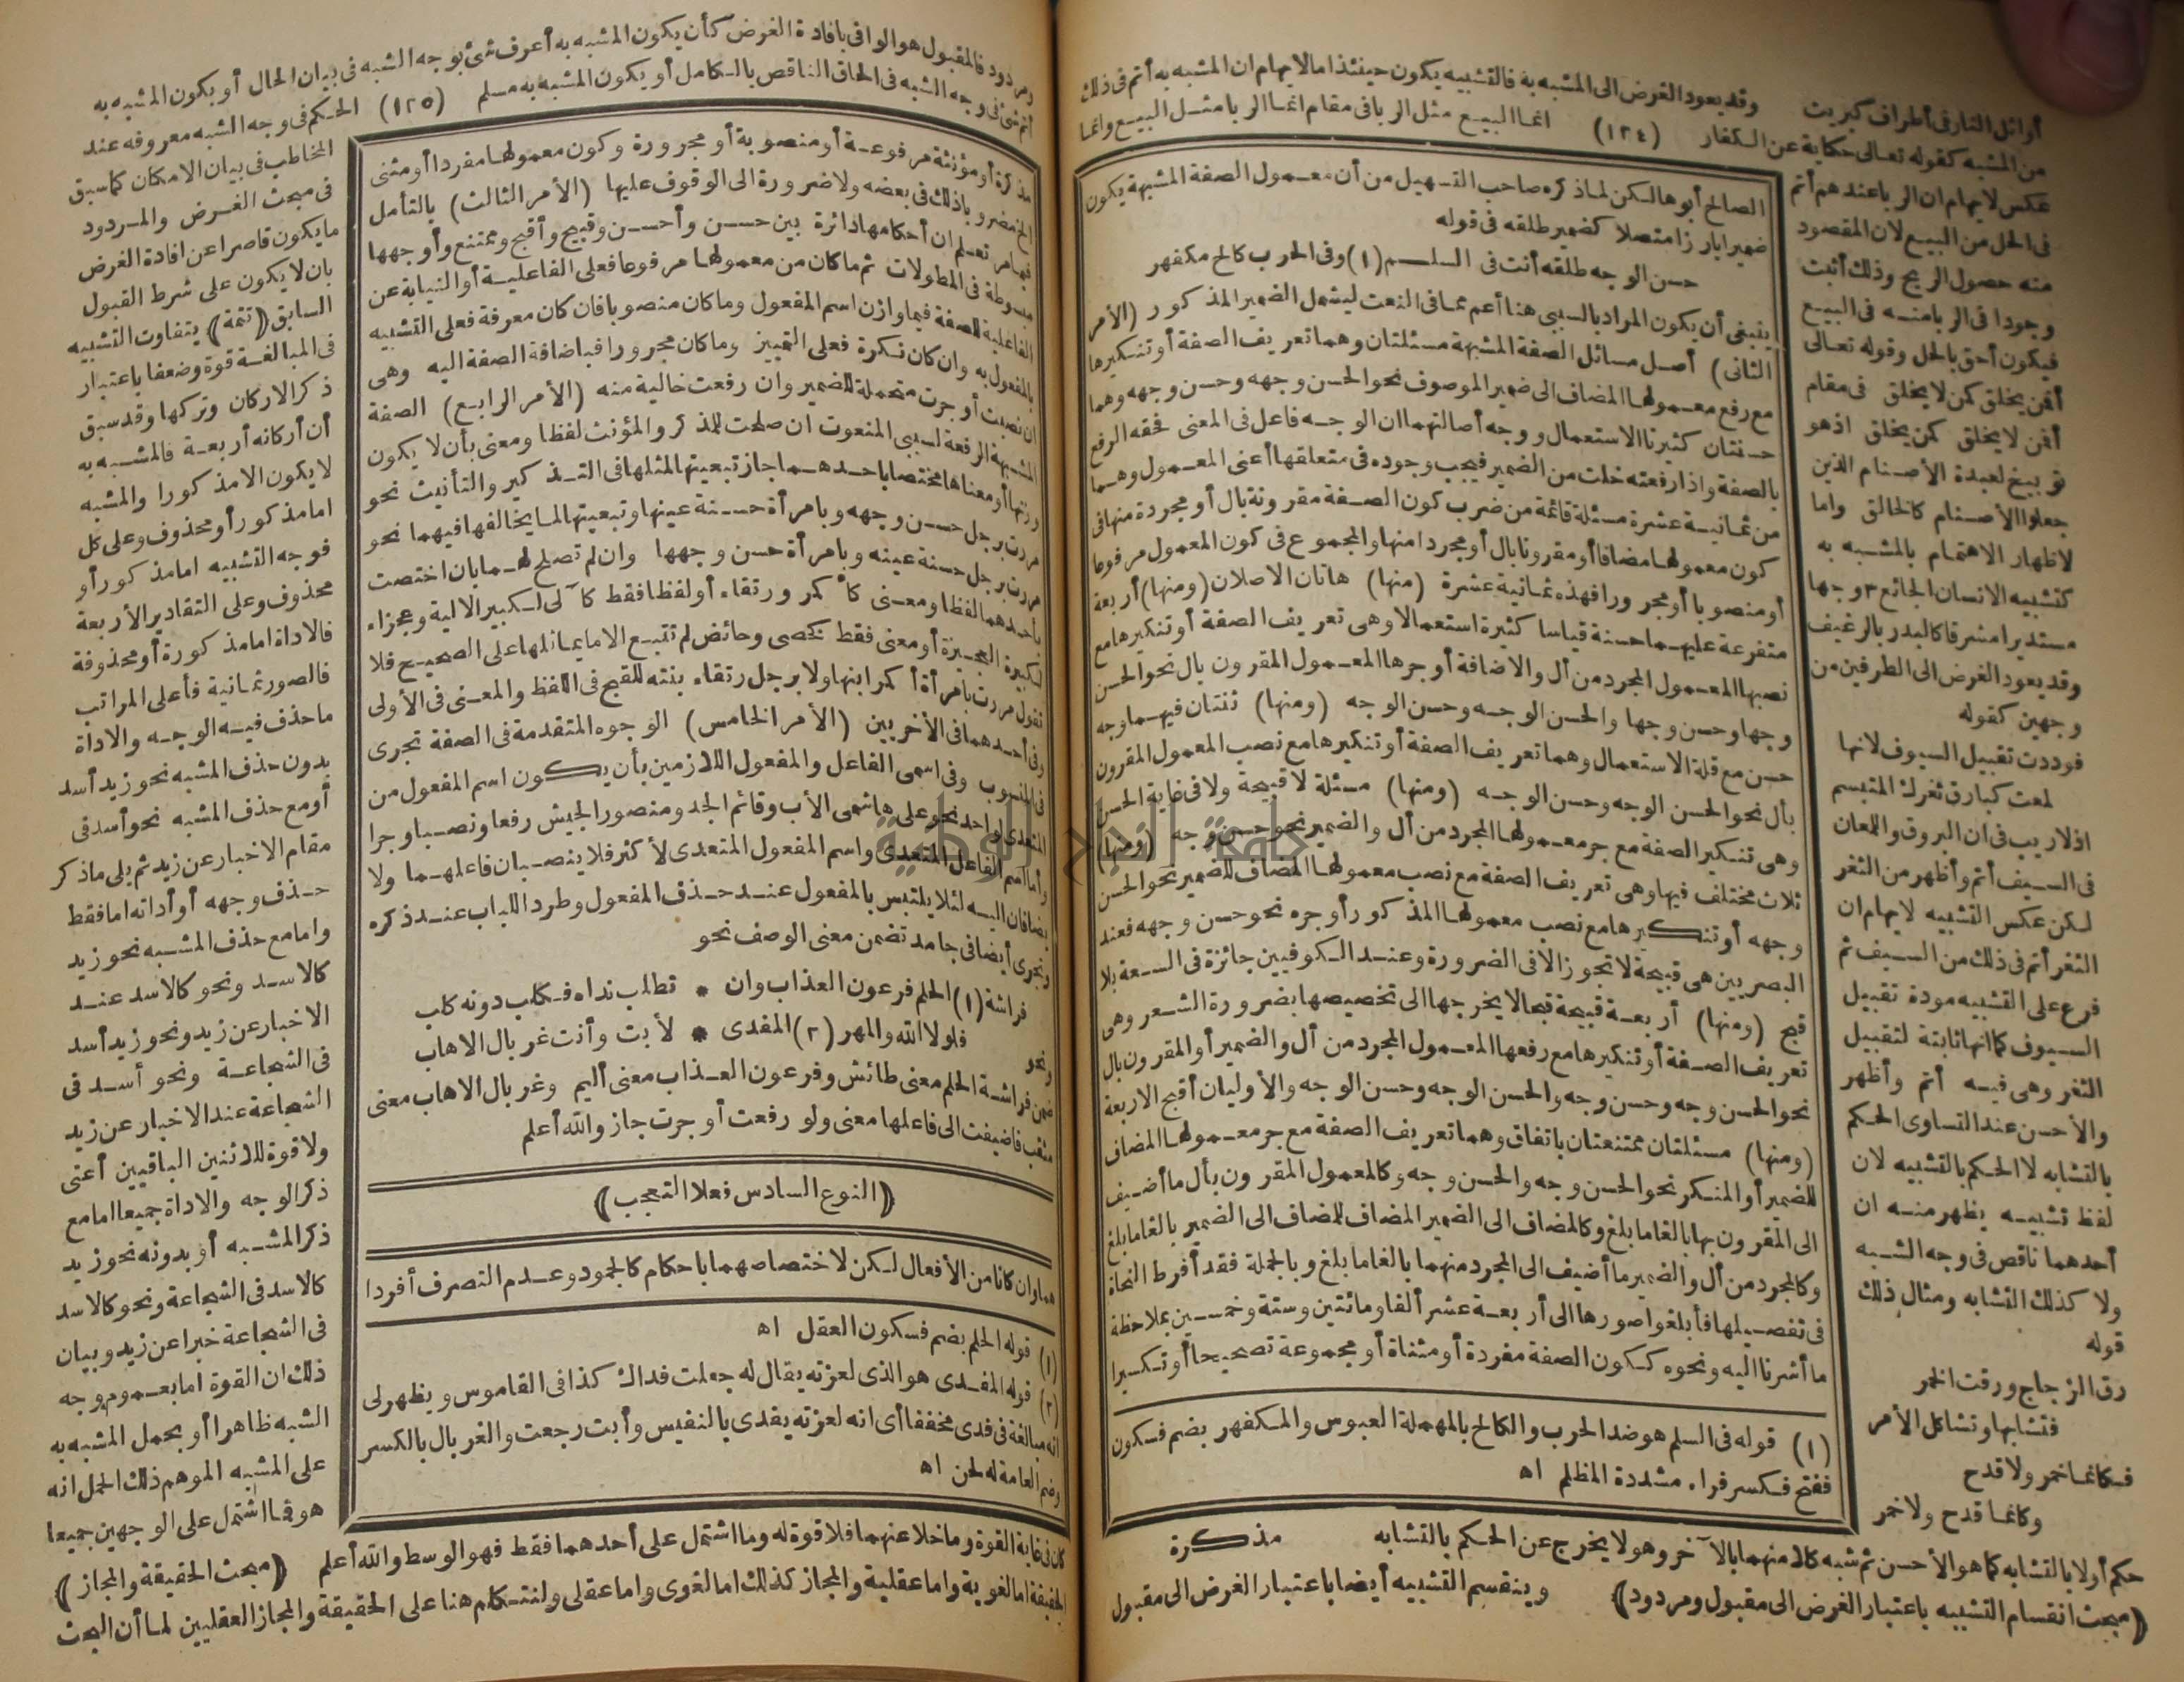 أوائل النار فى أطراف كبريت وقد يعود الغرض الى المشبه به فالتشبيه يكون حينئذ اما لايهام ان المشبه به أتم فى ذلك
من المشبه كقوله تعالى حكاية عن الكفار (١٢٤) انما البيع مثل الربا فى مقام انما الربا مثل البيع وانما
عكس لايهام ان الربا عندهم أتم
فى الحل من البيع لان المقصود
منه حصول الربح وذلك أثبت
وجودا فى الربا منه فى البيع
فيكون أحق بالحل وقوله تعالى
أفمن يخلق كمن لا يخلق فى مقام
أفمن لا يخلق كمن يخلق اذ هو
توبيخ لعبدة الأصنام الذين
جعلوا الأصنام كالخالق واما
لاظهار الاهتمام بالمشبه به
كتشبيه الانسان الجائع ٣ وجها
مستديرا مشرقا كالبدر بالرغيف
وقد يعود الغرض الى الطرفين من
وجهين كقوله
فوددت تقبيل السيوف لانها
لمعت كبارق ثغرك المتبسم
اذ لا ريب فى ان البروق واللمعان
فى السيف أتم وأظهر من الثغر
لكن عكس التشبيه لايهام ان
الثغر أتم فى ذلك من السيف ثم
فرع على التشبيه مودة تقبيل
السيوف كما انها ثابتة لتقبيل
الثغر وهى فيه أتم وأظهر
والأحسن عند التساوى الحكم
بالتشابه لا الحكم بالتشبيه لان
لفظ تشبيه يظهر منه ان
أحدهما ناقص فى وجه الشبه
ولا كذلك التشابه ومثال ذلك
قوله
رق الزجاج ورقت الخمر
فتشابها وتشاكل الأمر
فكانما خمر ولا قدح
وكانما قدح ولا خمر
الصالح أبوها لكن لماذكره صاحب التسهيل من أن معمول الصفة المشبهة يكون
ضميرا بارزا متصلا كضمير طلقه فى قوله
حسن الوجه طلقه أنت فى السلم (١) وفى الحرب كالح مكفهر
ينبغى أن يكون المراد بالسببى هنا أعم مما فى النعت ليشمل الضمير المذكور (الأمر
الثانى) أصل مسائل الصفة المشبهة مسئلتان وهما تعريف الصفة أو تنكيرها
مع رفع معمولها المضاف الى ضمير الموصوف نحو الحسن وجهه وحسن وجهه وهما
حسنتان كثيرتا الاستعمال ووجه أصالتهما ان الوجه فاعل فى المعنى فحقه الرفع
بالصفة واذا رفعته خلت من الضمير فيجب وجوده فى متعلقها أعنى المعمول وهما
من ثمانية عشرة مسئلة قائمة من ضرب كون الصفة مقرونة بال أو مجردة منها فى
كون معمولها مضافا أو مقرونا بال أو مجردا منها والمجموع فى كون المعمول مرفوعا
أو منصوبا أو مجرورا فهذه ثمانية عشرة (منها) هاتان الاصلان (ومنها) أربعة
متفرعة عليهما حسنة قياسا كثيرة استعمالا وهى تعريف الصفة أو تنكيرها مع
نصبها المعمول المجرد من أل والاضافة أو جرها المعمول المقرون بال نحو الحسن
وجها وحسن وجها والحسن الوجه وحسن الوجه (ومنها) ثنتان فيهما وجه
حسن مع قلة الاستعمال وهما تعريف الصفة أو تنكيرها مع نصب المعمول المقرون
بأل نحو الحسن الوجه وحسن الوجه (ومنها) مسئلة لا قبيحة ولا فى غاية الحسن
وهى تنكير الصفة مع جر معمولها المجرد من أل والضمير نحو حسن وجه (ومنها)
ثلاث مختلف فيها وهى تعريف الصفة مع نصب معمولها المضاف للضمير نحو الحسن
وجهه أو تنكيرها مع نصب معمولها المذكور أو جره نحو حسن وجهه فعند
البصريين هى قبيحة لا تجوز الا فى الضرورة وعند الكوفيين جائزة فى السعة بلا
قبح (ومنها) أربعة قبيحة قبحا لا يخرجها الى تخصيصها بضرورة الشعر وهى
تعريف الصفة أو تنكيرها مع رفعها المعمول المجرد من أل والضمير أو المقرون بال
نحو الحسن وجه وحسن وجه والحسن الوجه وحسن الوجه والأوليان أقبح الاربعة
(ومنها) مسئلتان ممتنعتان باتفاق وهما تعريف الصفة مع جر معمولها المضاف
للضمير أو المنكر نحو الحسن وجهه والحسن وجه وكالمعمول المقرون بأل ما أضيف
الى المقرون بها بالغا ما بلغ وكالمضاف الى الضمير المضاف للمضاف الى الضمير بالغا ما بلغ
وكالمجرد من أل والضمير ما أضيف الى المجرد منهما بالغا ما بلغ وبالجملة فقد أفرط النحاة
فى تفصيلها فأبلغوا صورها الى أربعة عشر ألفا ومائتين وستة وخمسين بملاحظة
ما أشرنا اليه ونحوه ككون الصفة مفردة أو مثناة أو مجموعة تصحيحا أو تكسيرا
(١) قوله فى السلم هو ضد الحرب والكالح بالمهملة العبوس والمكفهر بضم فسكون
ففتح فكسر فراء مشددة المظلم اه
مذكرة
حكم أولا بالتشابه كما هو الأحسن ثم شبه كلا منهما بالآخر وهو لا يخرج عن الحكم بالتشابه
(مبحث انقسام التشبيه باعتبار الغرض الى مقبول ومردود) وينقسم التشبيه أيضا باعتبار الغرض الى مقبول
ومردود فالمقبول هو الوافى بافادة الغرض كأن يكون المشبه به أعرف شئ بوجه الشبه فى بيان الحال أو يكون المشبه به
أتم شئ فى وجه الشبه فى الحاق الناقص بالكامل أو يكون المشبه به مسلم (١٢٥) الحكم فى وجه الشبه معروفه عند
المخاطب فى بيان الامكان كما سبق
فى مبحث الغرض والمردود
ما يكون قاصرا عن افادة الغرض
بان لا يكون على شرط القبول
السابق (تتمة) يتفاوت التشبيه
فى المبالغة قوة وضعفا باعتبار
ذكر الاركان وتركها وقد سبق
أن أركانه أربعة فالمشبه به
لا يكون الا مذكورا والمشبه
اما مذكور أو محذوف وعلى كل
فوجه التشبيه اما مذكور أو
محذوف وعلى التقادير الأربعة
فالاداة اما مذكورة أو محذوفة
فالصور ثمانية فأعلى المراتب
ما حذف فيه الوجه والاداة
بدون حذف المشبه نحو زيد أسد
أو مع حذف المشبه نحو أسد فى
مقام الاخبار عن زيد ثم يلى ما ذكر
حذف وجهه أو أداته اما فقط
واما مع حذف المشبه نحو زيد
كالاسد ونحو كالاسد عند
الاخبار عن زيد ونحو زيد أسد
فى الشجاعة ونحو أسد فى
الشجاعة عند الاخبار عن زيد
ولا قوة للاثنين الباقيين أعنى
ذكر الوجه والاداة جميعا اما مع
ذكر المشبه أو بدونه نحو زيد
كالاسد فى الشجاعة ونحو كالاسد
فى الشجاعة خبرا عن زيد وبيان
ذلك ان القوة اما بعموم وجه
الشبه ظاهرا أو بحمل المشبه به
على المشبه الموهم ذلك الحمل انه
هو فما اشتمل على الوجهين جميعا
مذكرة أو مؤنثة مرفوعة أو منصوبة أو مجرورة وكون معمولها مفردا أو مثنى
الخ مضروبا ذلك فى بعضه ولا ضرورة الى الوقوف عليها (الأمر الثالث) بالتأمل
فيما مر تعلم ان أحكامها دائرة بين حسن وأحسن وقبيح وأقبح وممتنع وأوجهها
مبسوطة فى المطولات ثم ما كان من معمولها مرفوعا فعلى الفاعلية أو النيابة عن
الفاعلية للصفة فيما وازن اسم المفعول وما كان منصوبا فان كان معرفة فعلى التشبيه
بالمفعول به وان كان نكرة فعلى التمييز وما كان مجرورا فباضافة الصفة اليه وهى
ان نصبت أو جرت متحملة للضمير وان رفعت خالية منه (الأمر الرابع) الصفة
المشبهة الرافعة لسببى المنعوت ان صلحت للمذكر والمؤنث لفظا ومعنى بأن لا يكون
وزنها أو معناها مختصا باحدهما جاز تبعيتها لمثلها فى التذكير والتأنيث نحو
مررت برجل حسن وجهه وبامرأة حسنة عينها وتبعيتها لما يخالفها فيهما نحو
مررت برجل حسنة عينه وبامرأة حسن وجهها وان لم تصلح لهما بان اختصت
بأحدهما لفظا ومعنى كأكمر ورتقاء أو لفظا فقط كآلى لكبير الالية وعجزاء
لكبيرة العجيزة أو معنى فقط كخصى وحائض لم تتبع الا ما يماثلها على الصحيح فلا
تقول مررت بامرأة أكمر ابنها ولا برجل رتقاء بنته للقبح فى اللفظ والمعنى فى الأولى
وفى أحدهما فى الأخريين (الأمر الخامس) الوجوه المتقدمة فى الصفة تجرى
فى المنسوب وفى اسمى الفاعل والمفعول اللازمين بأن يكون اسم المفعول من
المتعدى لواحد نحو على هاشمى الأب وقائم الجد ومنصور الجيش رفعا ونصبا وجرا
وأما اسم الفاعل المتعدى واسم المفعول المتعدى لأكثر فلا ينصبان فاعلهما ولا
يضافان اليه لئلا يلتبس بالمفعول عند حذف المفعول وطرد اللباب عند ذكره
وتجرى أيضا فى جامد تضمن معنى الوصف نحو
فراشة (١) الحلم فرعون العذاب وان * تطلب نداه فكلب دونه كلب
ونحو فلولا الله والمهر (٢) المفدى * لأبت وأنت غربال الاهاب
ضمن فراشة الحلم معنى طائش وفرعون العذاب معنى أليم وغربال الاهاب معنى
مثقب فاضيفت الى فاعلها معنى ولو رفعت أو جرت جاز والله أعلم
(النوع السادس فعلا التعجب)
هما وان كانا من الأفعال لكن لاختصاصهما باحكام كالجمود وعدم التصرف أفردا
(١) قوله الحلم بضم فسكون العقل اه
(٢) قوله المفدى هو الذى لعزته يقال له جعلت فداك كذا فى القاموس ويظهر لى
انه مبالغة فى فدى مخففا أى انه لعزته يفدى بالنفيس وأبت رجعت والغربال بالكسر
وضم العامة له لحن اه
كان فى غاية القوة وما خلا عنهما فلا قوة له وما اشتمل على أحدهما فقط فهو الوسط والله أعلم (مبحث الحقيقة والمجاز)
الحقيقة اما لغوية واما عقلية والمجاز كذلك اما لغوى واما عقلى ولنتكلم هنا على الحقيقة والمجاز العقليين لما أن البحث
جامعة النجاح الوطنية